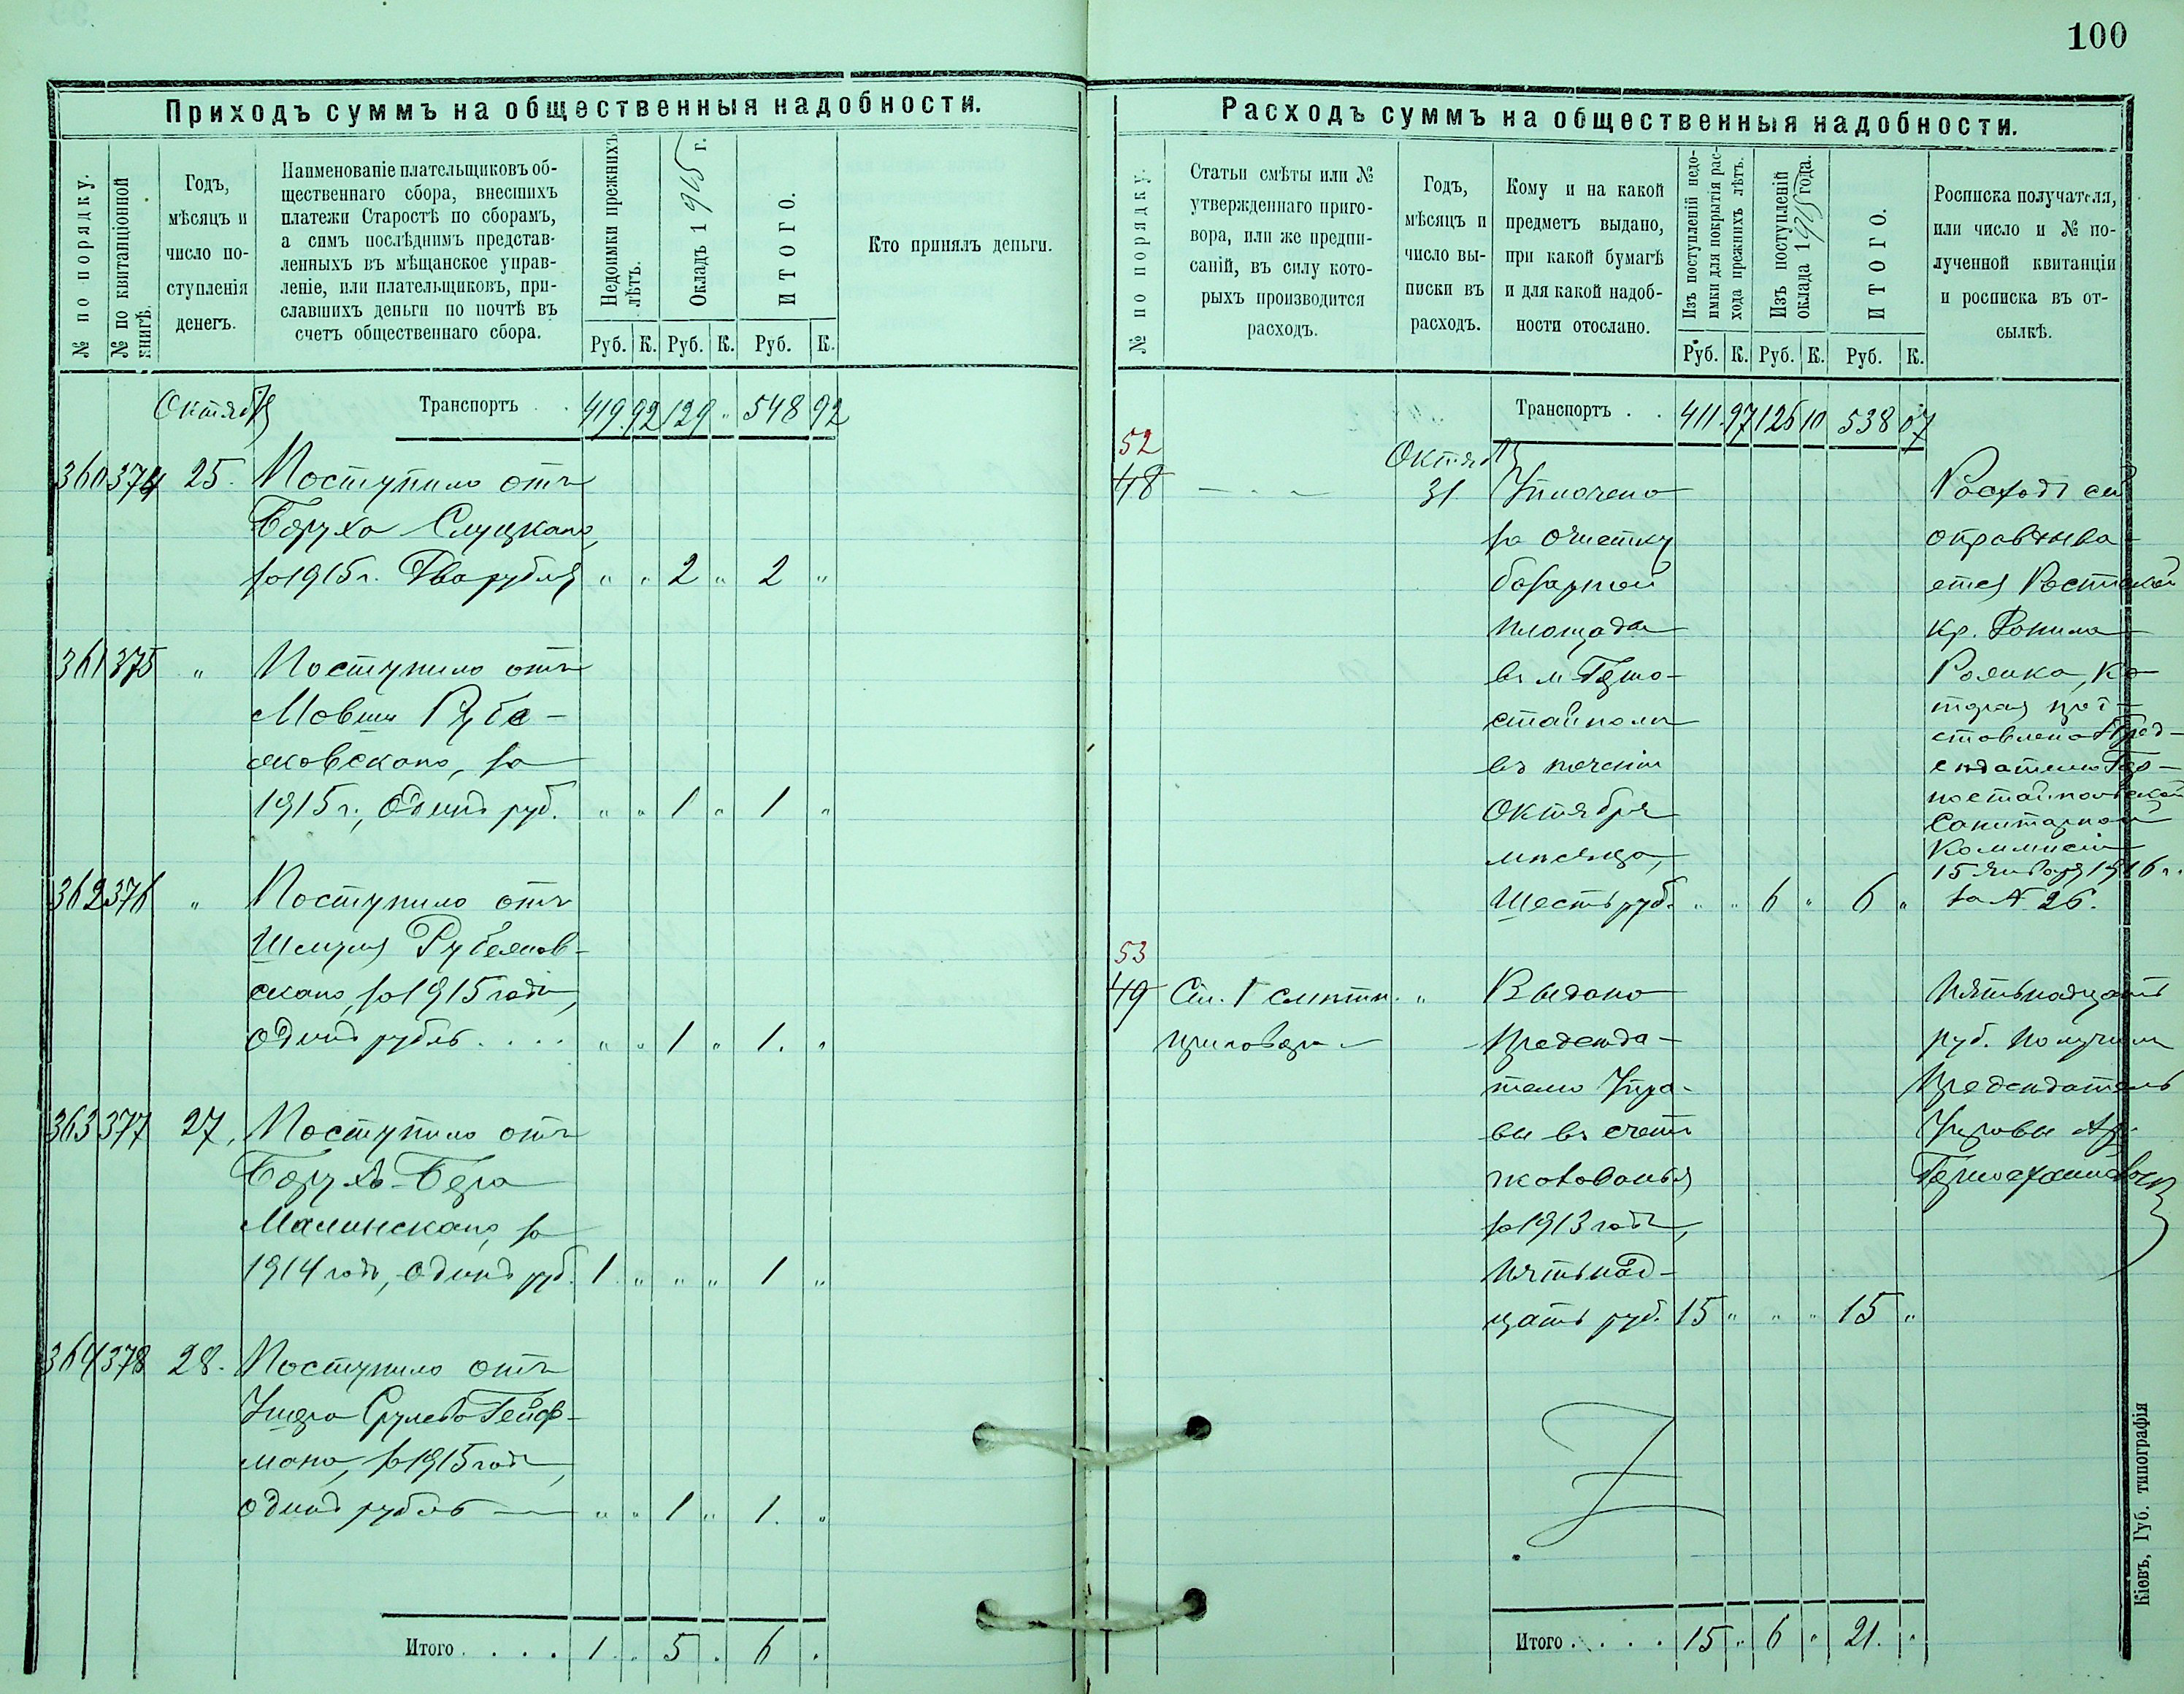 100
Приходъ суммъ на общественныя надобности.
№ по порядку.
№ по квитанціонной
книгѣ.
Годъ,
мѣсяцъ и
число по-
ступленія
денегъ.
Наименованіе плательщиковъ об-
щественнаго сбора, внесшихъ
платежи Старостѣ по сборамъ,
а симъ послѣднимъ представ-
ленныхъ въ мѣщанское управ-
леніе, или плательщиковъ, при-
славшихъ деньги по почтѣ въ
счетъ общественнаго сбора.
Недоимки прежнихъ
лѣтъ.
Окладъ 1915 г.
ИТОГО.
Кто принялъ деньги.
Руб. К. Руб. К. Руб. К.
Октября Транспортъ . . 419 92 129 „ 548 92
360 374 25. Поступило отъ
Боруха Слуцкаго,
за 1915 г. Два рубля „ „ 2 „ 2 „
361 375 „ Поступило отъ
Мовши Рубе-
яковскаго, за
1915 г., Одинъ руб. „ „ 1 „ 1 „
362 376 „ Поступило отъ
Шмуля Рубеяков-
скаго, за 1915 годъ,
одинъ рубль . . . . „ „ 1 „ 1. „
363 377 27, Поступило отъ
Борухъ-Бера
Малинскаго, за
1914 годъ, одинъ руб. 1 „ „ „ 1 „
364 378 28. Поступило отъ
Ушера Срулева Гейф-
мана, за 1915 годъ,
одинъ рубль — „ „ 1 „ 1. „
Итого . . . . 1 . . 5 . 6 .
Расходъ суммъ на общественныя надобности.
№ по порядку.
Статьи смѣты или №
утвержденнаго приго-
вора, или же предпи-
саній, въ силу кото-
рыхъ производится
расходъ.
Годъ,
мѣсяцъ и
число вы-
писки въ
расходъ.
Кому и на какой
предметъ выдано,
при какой бумагѣ
и для какой надоб-
ности отослано.
Изъ поступленій недо-
имки для покрытія рас-
хода прежнихъ лѣтъ.
Изъ поступленій
оклада 1915 года.
ИТОГО.
Росписка получателя,
или число и № по-
лученной квитанціи
и росписка въ от-
сылкѣ.
Руб. К. Руб. К. Руб. К.
Транспортъ . . 411 97 126 10 538 07
52
Октября
48 — „ — 31. Уплочено
за очистку
базарной
площади
въ м. Горно-
стайполи
въ теченіи
Октября
мѣсяца,
Шесть руб. „ „ 6 „ 6 „
Расходъ сей
оправдыва-
ется Роспиской
кр.
Которая пред-
ставлена Пред-
сѣдателю Гор-
ностайпольской
Санитарной
Коммисіи
15 Января 1916 г.
за № 26.
53
49 Ст. 1 смѣтн. „ Выдано
приговора — Предсѣда-
телю Упра-
вы въ счетъ
жалованья
за 1913 годъ,
Пятьнад-
цать руб. 15 „ „ „ 15 „
Пятьнадцать
руб. получилъ
Предсѣдатель
Управы
Итого . . . . 15 „ 6 „ 21. „
Кіевъ, Губ. типографія